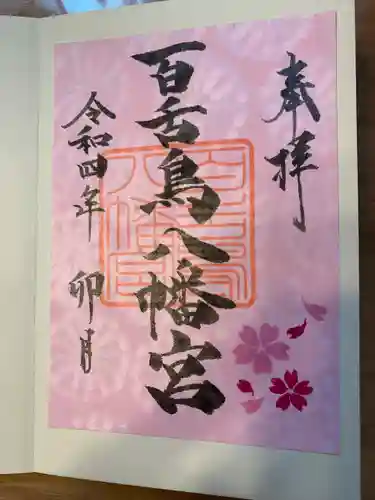 奉拝
百舌鳥八幡宮
令和四年 卯月